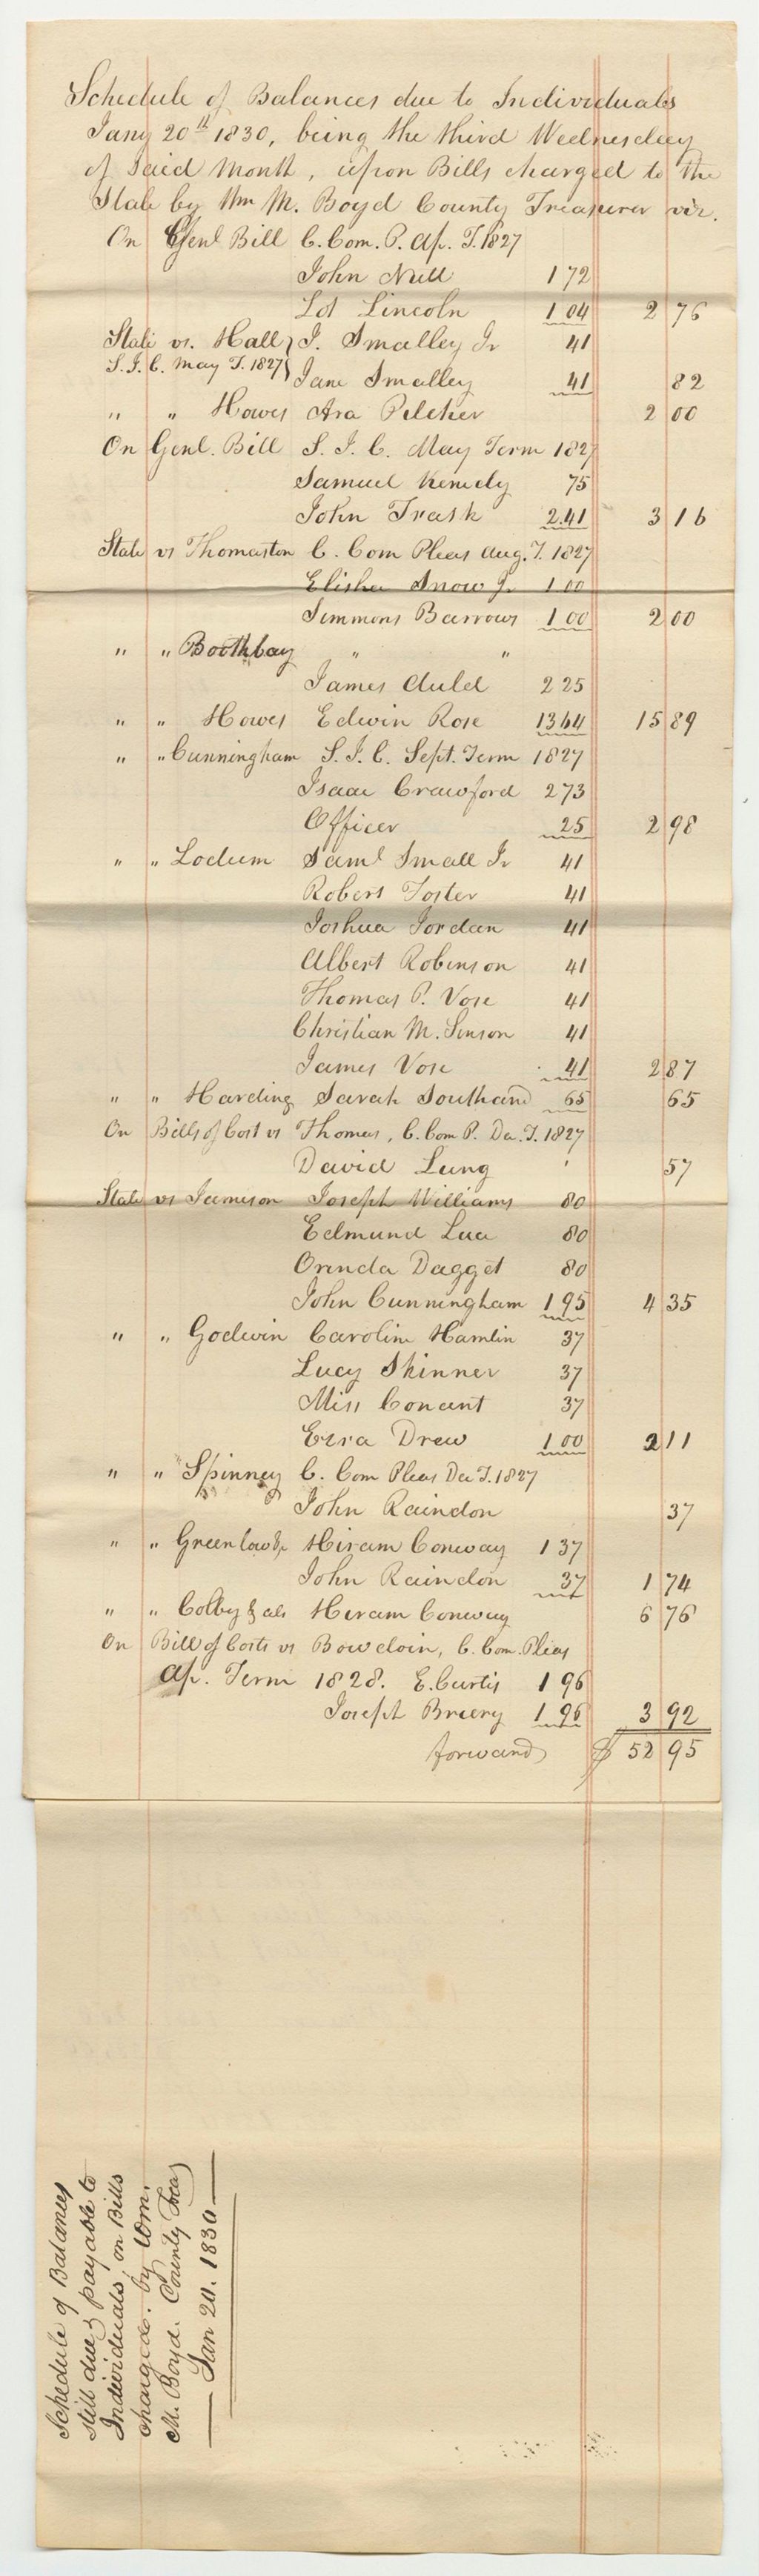 Schedule of Balances due to Individuals
Jany 20th 1830, being the third Wednesday
of said Month, upon Bills charged to the
State by Wm M. Boyd County Treasurer viz.
On Genl Bill C. Com. P. Ap. T. 1827
John Null 1 72
Lot Lincoln 1 04 2 76
State vs. Hall } J. Smalley Jr 41
S. J. C. May T. 1827 } Jane Smalley 41 82
" " Howes Ara Pilcher 2 00
On Genl. Bill S. J. C. May Term 1827
Samuel Kenedy 75
John Trask 2.41 3 16
State vs Thomaston C. Com Pleas Aug. T. 1827
Elisha Snow Jr 1 00
Simmons Barrows 1 00 2 00
" " Boothbay " "
James Auld 2 25
" " Howes Edwin Rose 13 64 15 89
" " Cunningham S. J. C. Sept. Term 1827
Isaac Crawford 2 73
Officer 25 2 98
" " Lodum Saml Small Jr 41
Robert Foster 41
Joshua Jordan 41
Albert Robinson 41
Thomas P. Vose 41
Christian M. Sinson 41
James Vose 41 2 87
" " Harding Sarah Southand 65 65
On Bills of Cost vs Thomas, C. Com P. De. T. 1827
David Lung 57
State vs Jameson Joseph Williams 80
Edmund Luce 80
Orinda Dagget 80
John Cunningham 1 95 4 35
" " Godwin Caroline Hamlin 37
Lucy Skinner 37
Miss Conant 37
Ezra Drew 1 00 2 11
" " Spinney C. Com Pleas De T. 1827
John Raindon 37
" " Greenlow & Hiram Conway 1 37
John Raindon 37 1 74
" " Colby & als Hiram Conway 6 76
On Bill of Costs vs Bowdoin, C. Com. Pleas
Ap. Term 1828. E. Curtis 1 96
Joseph Breery 1 96 3 92
forward $ 52 95
Schedule of Balances
still due & payable to
Individuals, on Bills
charged. by Wm.
M. Boyd. County Trea
Jan 20. 1830